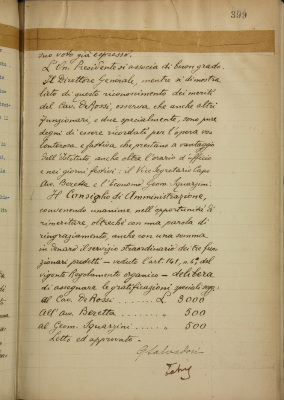 399
suo voto già espresso.
L'On. Presidente si associa di buon grado.
Il Direttore Generale, mentre si dimostra
lieto di questo riconoscimento dei meriti
del Cav. De Rossi, osserva che anche altri
funzionari, e due specialmente, sono pure
degni di essere ricordati per l'opera vo=
lonterosa e fattiva, che prestano a vantaggio
dell'Istituto, anche oltre l'orario d'ufficio
e nei giorni festivi: il Vice Segretario Capo
Avv. Beretta e l'Economo Geom. Squarzini.
Il Consiglio di Amministrazione,
convenendo unanime nell'opportunità di
rimeritare, oltreché con una parola di
ringraziamento, anche con una somma
in denaro il servizio straordinario dei tre fun=
zionari predetti – veduto l'art. 148, n. 6° del
vigente Regolamento organico – delibera
di assegnare le gratificazioni speciali
al Cav. De Rossi ........ L 3000
All'avv. Beretta ........ " 500
al Geom. Squarzini ........ " 500
Letto ed approvato –